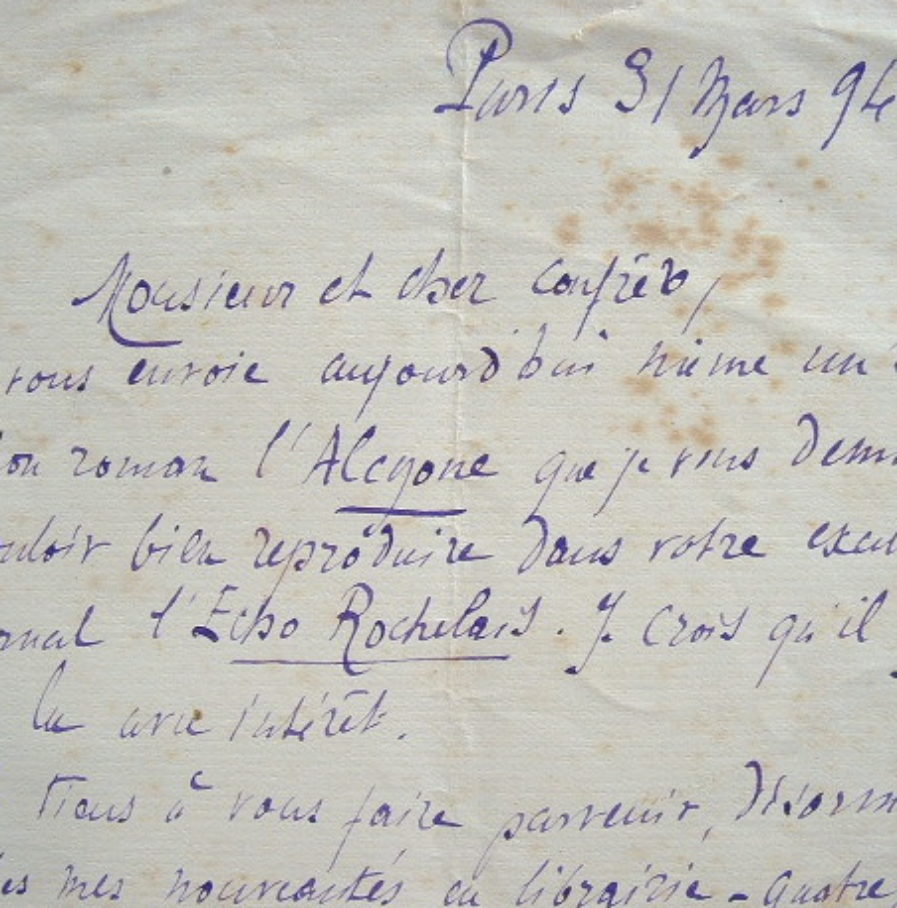 Paris 31 Mars 94
Monsieur et cher confrère,
vous envoie aujourd'hui même un
mon roman l'Alcyone que je vous
bien reproduire dans votre
l'Echo Rochelais. Je crois qu'il
lu avec intérêt.
Tiens à vous faire parvenir,
mes nouveautés en librairie - quatre